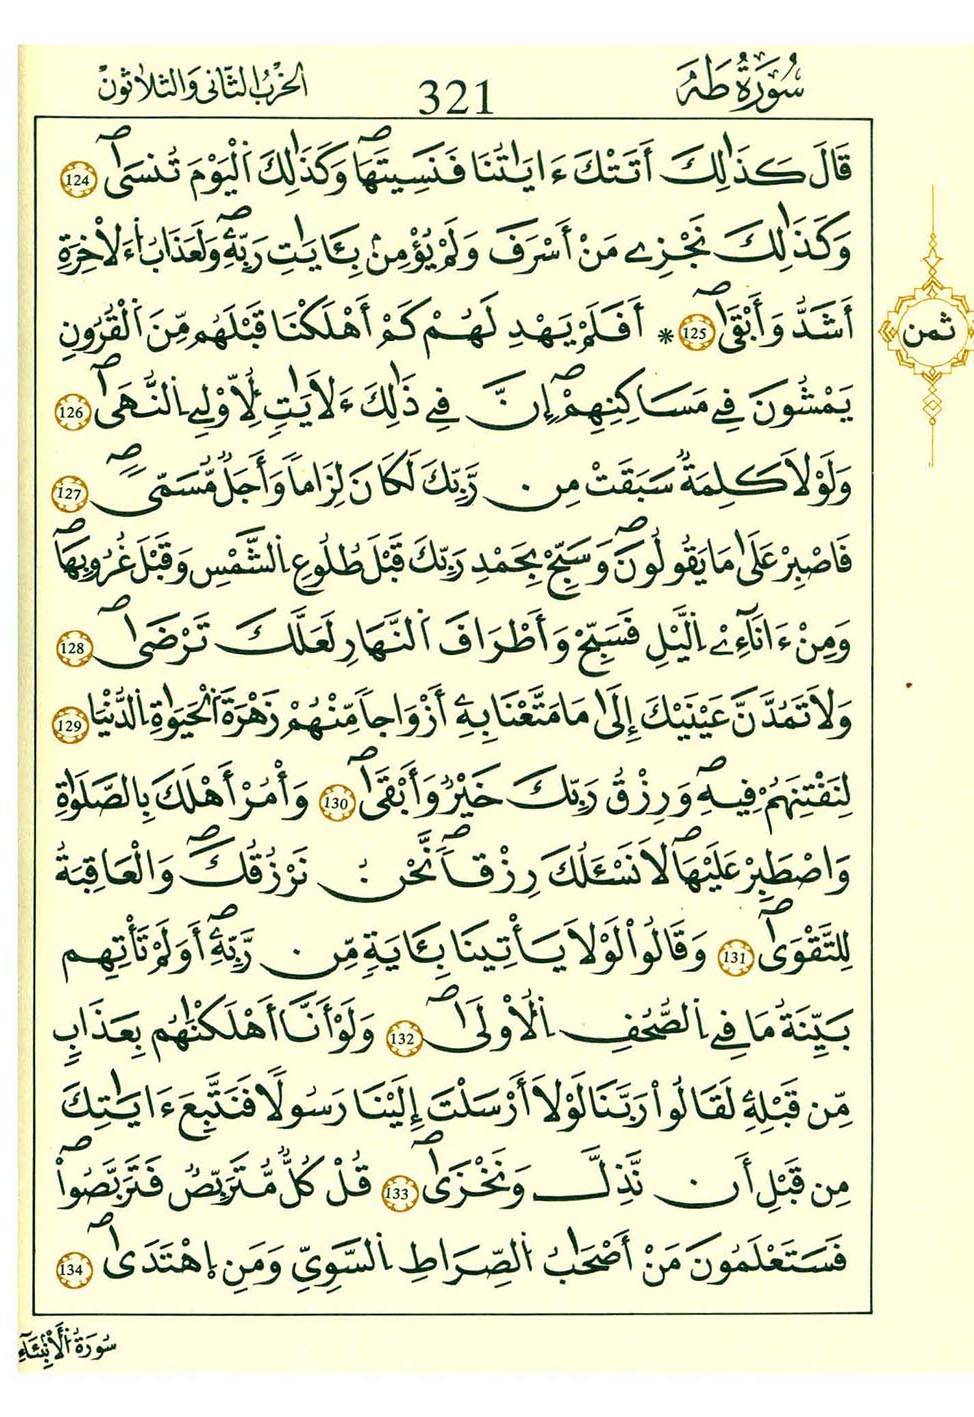 سُورَةُ طَهَ
321
الحِزْبُ الثَّانِي وَالثَّلاَثُونَ
قَالَ كَذَٰلِكَ أَتَتْكَ ءَايَٰتُنَا فَنَسِيتَهَاۖ وَكَذَٰلِكَ اَ۬لْيَوْمَ تُنس۪ىٰۖ 124
وَكَذَٰلِكَ نَجْزِے مَنْ أَسْرَفَ وَلَمْ يُؤْمِنۢ بِـَٔايَٰتِ رَبِّهِۦۖ وَلَعَذَابُ اُ۬لَاخِرَةِ
أَشَدُّ وَأَبْق۪ىٰۖ 125 * أَفَلَمْ يَهْدِ لَهُمْ كَمْ أَهْلَكْنَا قَبْلَهُم مِّنَ اَ۬لْقُرُونِ
يَمْشُونَ فِے مَسَٰكِنِهِمْۖ إِنَّ فِے ذَٰلِكَ ءَلَايَٰتٖ لِّأُوْلِے اِ۬لنُّه۪ىٰۖ 126
وَلَوْلَا كَلِمَةٞ سَبَقَتْ مِن رَّبِّكَ لَكَانَ لِزَاماٗ وَأَجَلٞ مُّسَمّىٗۖ 127
فَاصْبِرْ عَلَىٰ مَا يَقُولُونَۖ وَسَبِّحْ بِحَمْدِ رَبِّكَ قَبْلَ طُلُوعِ اِ۬لشَّمْسِ وَقَبْلَ غُرُوبِهَاۖ
وَمِنْ ءَانَآءِےْ اِ۬ليْلِ فَسَبِّحْ وَأَطْرَافَ اَ۬لنَّهَارِ لَعَلَّكَ تَرْض۪ىٰۖ 128
وَلَا تَمُدَّنَّ عَيْنَيْكَ إِلَىٰ مَا مَتَّعْنَا بِهِۦ أَزْوَٰجاٗ مِّنْهُمْ زَهْرَةَ اَ۬لْحَيَوٰةِ اِ۬لدُّنْي۪ا 129
لِنَفْتِنَهُمْ فِيهِۖ وَرِزْقُ رَبِّكَ خَيْرٞ وَأَبْق۪ىٰۖ 130 وَأْمُرْ أَهْلَكَ بِالصَّلَوٰةِ
وَاصْطَبِرْ عَلَيْهَاۖ لَا نَسْـَٔلُكَ رِزْقاٗۖ نَّحْنُ نَرْزُقُكَۖ وَالْعَٰقِبَةُ
لِلتَّقْو۪ىٰۖ 131 وَقَالُواْ لَوْلَا يَأْتِينَا بِـَٔايَةٖ مِّن رَّبِّهِۦۖ أَوَلَمْ تَأْتِهِم
بَيِّنَةُ مَا فِے اِ۬لصُّحُفِ اِ۬لُاول۪ىٰۖ 132 وَلَوْ أَنَّآ أَهْلَكْنَٰهُم بِعَذَابٖ
مِّن قَبْلِهِۦ لَقَالُواْ رَبَّنَا لَوْلَآ أَرْسَلْتَ إِلَيْنَا رَسُولاٗ فَنَتَّبِعَ ءَايَٰتِكَ
مِن قَبْلِ أَن نَّذِلَّ وَنَخْز۪ىٰۖ 133 قُلْ كُلّٞ مُّتَرَبِّصٞ فَتَرَبَّصُواْۖ
فَسَتَعْلَمُونَ مَنْ أَصْحَٰبُ اُ۬لصِّرَٰطِ اِ۬لسَّوِيِّ وَمَنِ اِ۪هْتَد۪ىٰ 134
ثمن
سُورَةُ اُ۬لْأَنۢبِئَآءِ